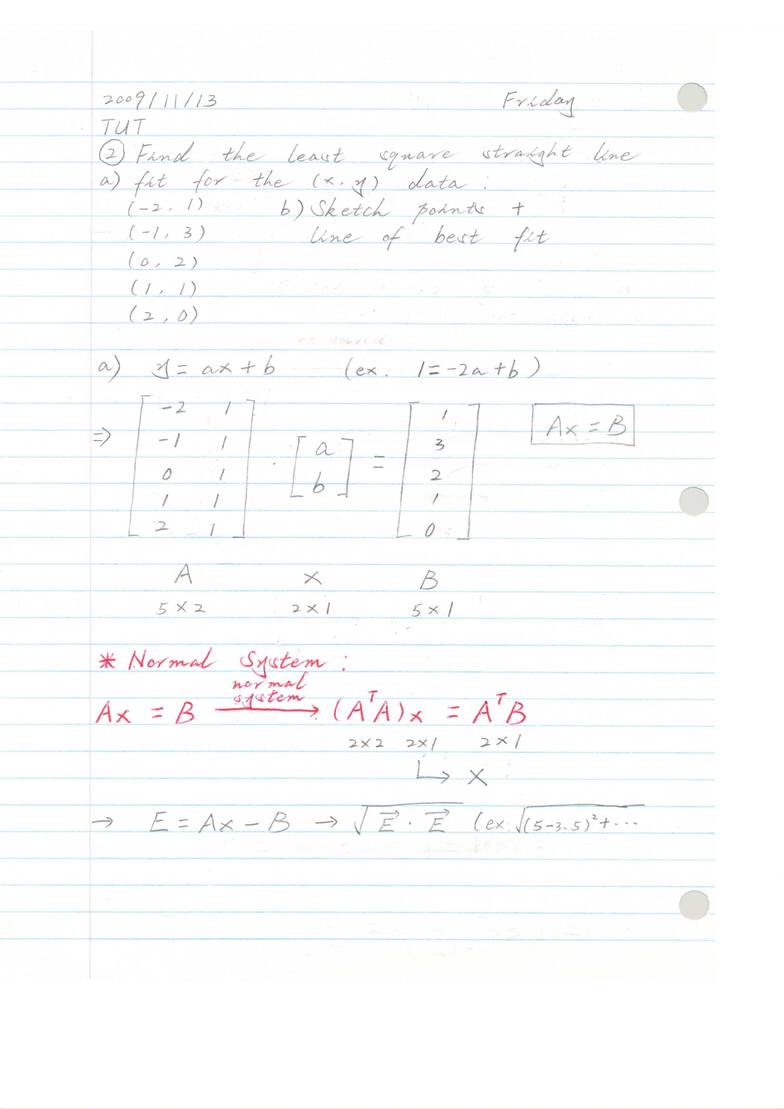 2009/11/13 Friday
TUT
② Find the least square straight line
a) fit for the (x, y) data :
(-2, 1) b) Sketch points +
(-1, 3) line of best fit
(0, 2)
(1, 1)
(2, 0)
a) y = ax + b (ex. 1 = -2a + b)
⇒ [-2 1 [a = [1 Ax = B
-1 1 · b] 3
0 1 2
1 1 1
2 1] 0]
A x B
5×2 2×1 5×1
* Normal System :
normal
system
Ax = B → (AᵀA)x = AᵀB
2×2 2×1 2×1
↳ x
→ E = Ax - B → √E⃗ · E⃗ (ex. √(5-3.5)²+...